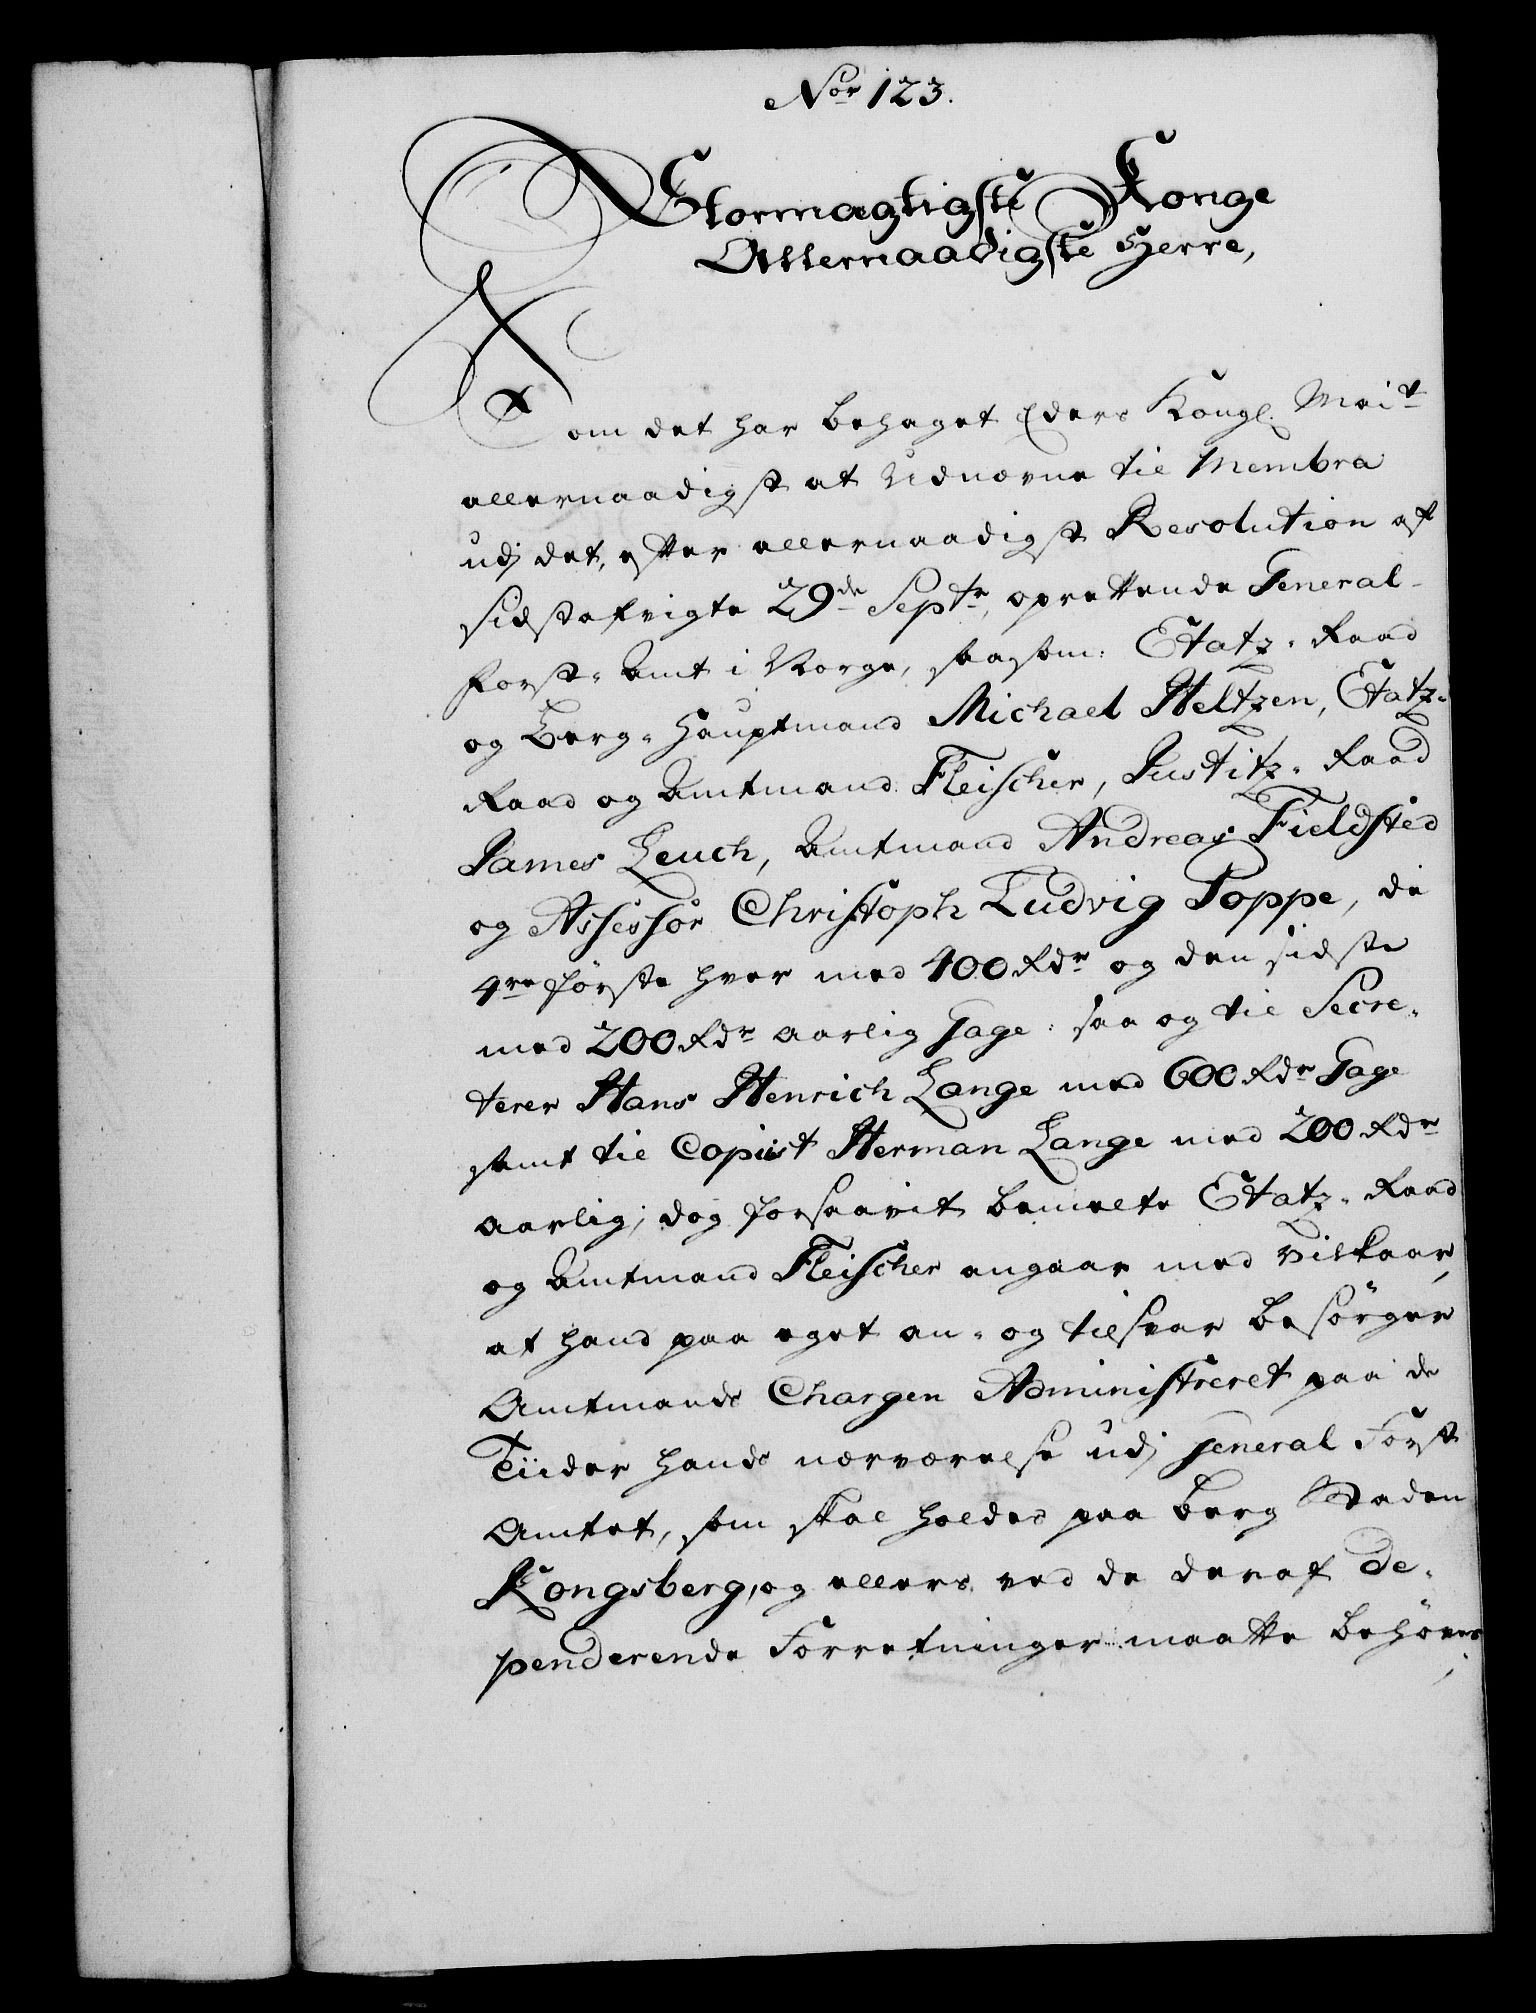 No:r 123.
Stormægtigste Konge
Allernaadigste Herre,
Som det har behaget Eders Kongl. Mai:t
allernaadigst at Udnævne til Membra
udj det, efter allernaadigst Resolution af
sidstafvigte 29de Septr, oprettende General-
Forst-Amt i Norge, saasom: Etatz-Raad
og Berg-Hauptmand Michael Heltzen, Etatz-
Raad og Amtmand Fleischer, Justitz-Raad
James Leuch, Amtmand Andreas Fieldsted
og Assessor Christoph Ludvig Poppe, de
4re første hver med 400 Rdr og den sidste
med 200 Rdr aarlig Gage: saa og til Secre-
terer Hans Henrich Lange med 600 Rdr Gage
samt til Copiist Herman Lange med 200 Rdr
aarlig; dog forsaavit bemelte Etatz-Raad
og Amtmand Fleischer angaar med Vilkaar,
at hand paa eget an- og tilsvar besørger
Amtmands Chargen Administreret paa de
Tiider hands nærværelse udj General Forst
Amtet, som skal holdes paa Berg Staden
Kongsberg, og ellers ved de deraf de-
penderende Forretninger maatte behøves,